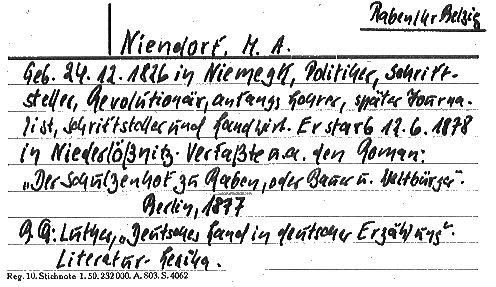 Raben/Kr Belzig
Niendorf, M. A.
Geb. 24.12.1826 in Niemegk, Politiker, Schrift-
steller, Revolutionär, anfangs Lehrer, später Journa-
list, Schriftsteller und Landwirt. Er starb 12.6.1878
in Niederlößnitz. Verfaßte u.a. den Roman:
„Der Schulzenhof zu Raben, oder Bauer u. Weltbürger".
Berlin, 1877
Luther, „Deutsches Land in deutscher Erzählung".
Literatur-Lexika.
Reg. 10. Stichnote 1. 50. 232000. A. 803. S. 4062